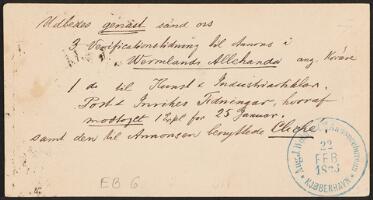 Udbedes genast sänd oss
3 Verificationstidning til Annons i
Wermlands Allehanda ang.
1 do til Kunst & Industriartiklar.
Post & Inrikes Tidningar, hvoraf
modtoget 1 Expl for 25 Januar.
samt den til Annonsen benyttede Cliché.
22
FEB
KJØBENHAVN
EB 6